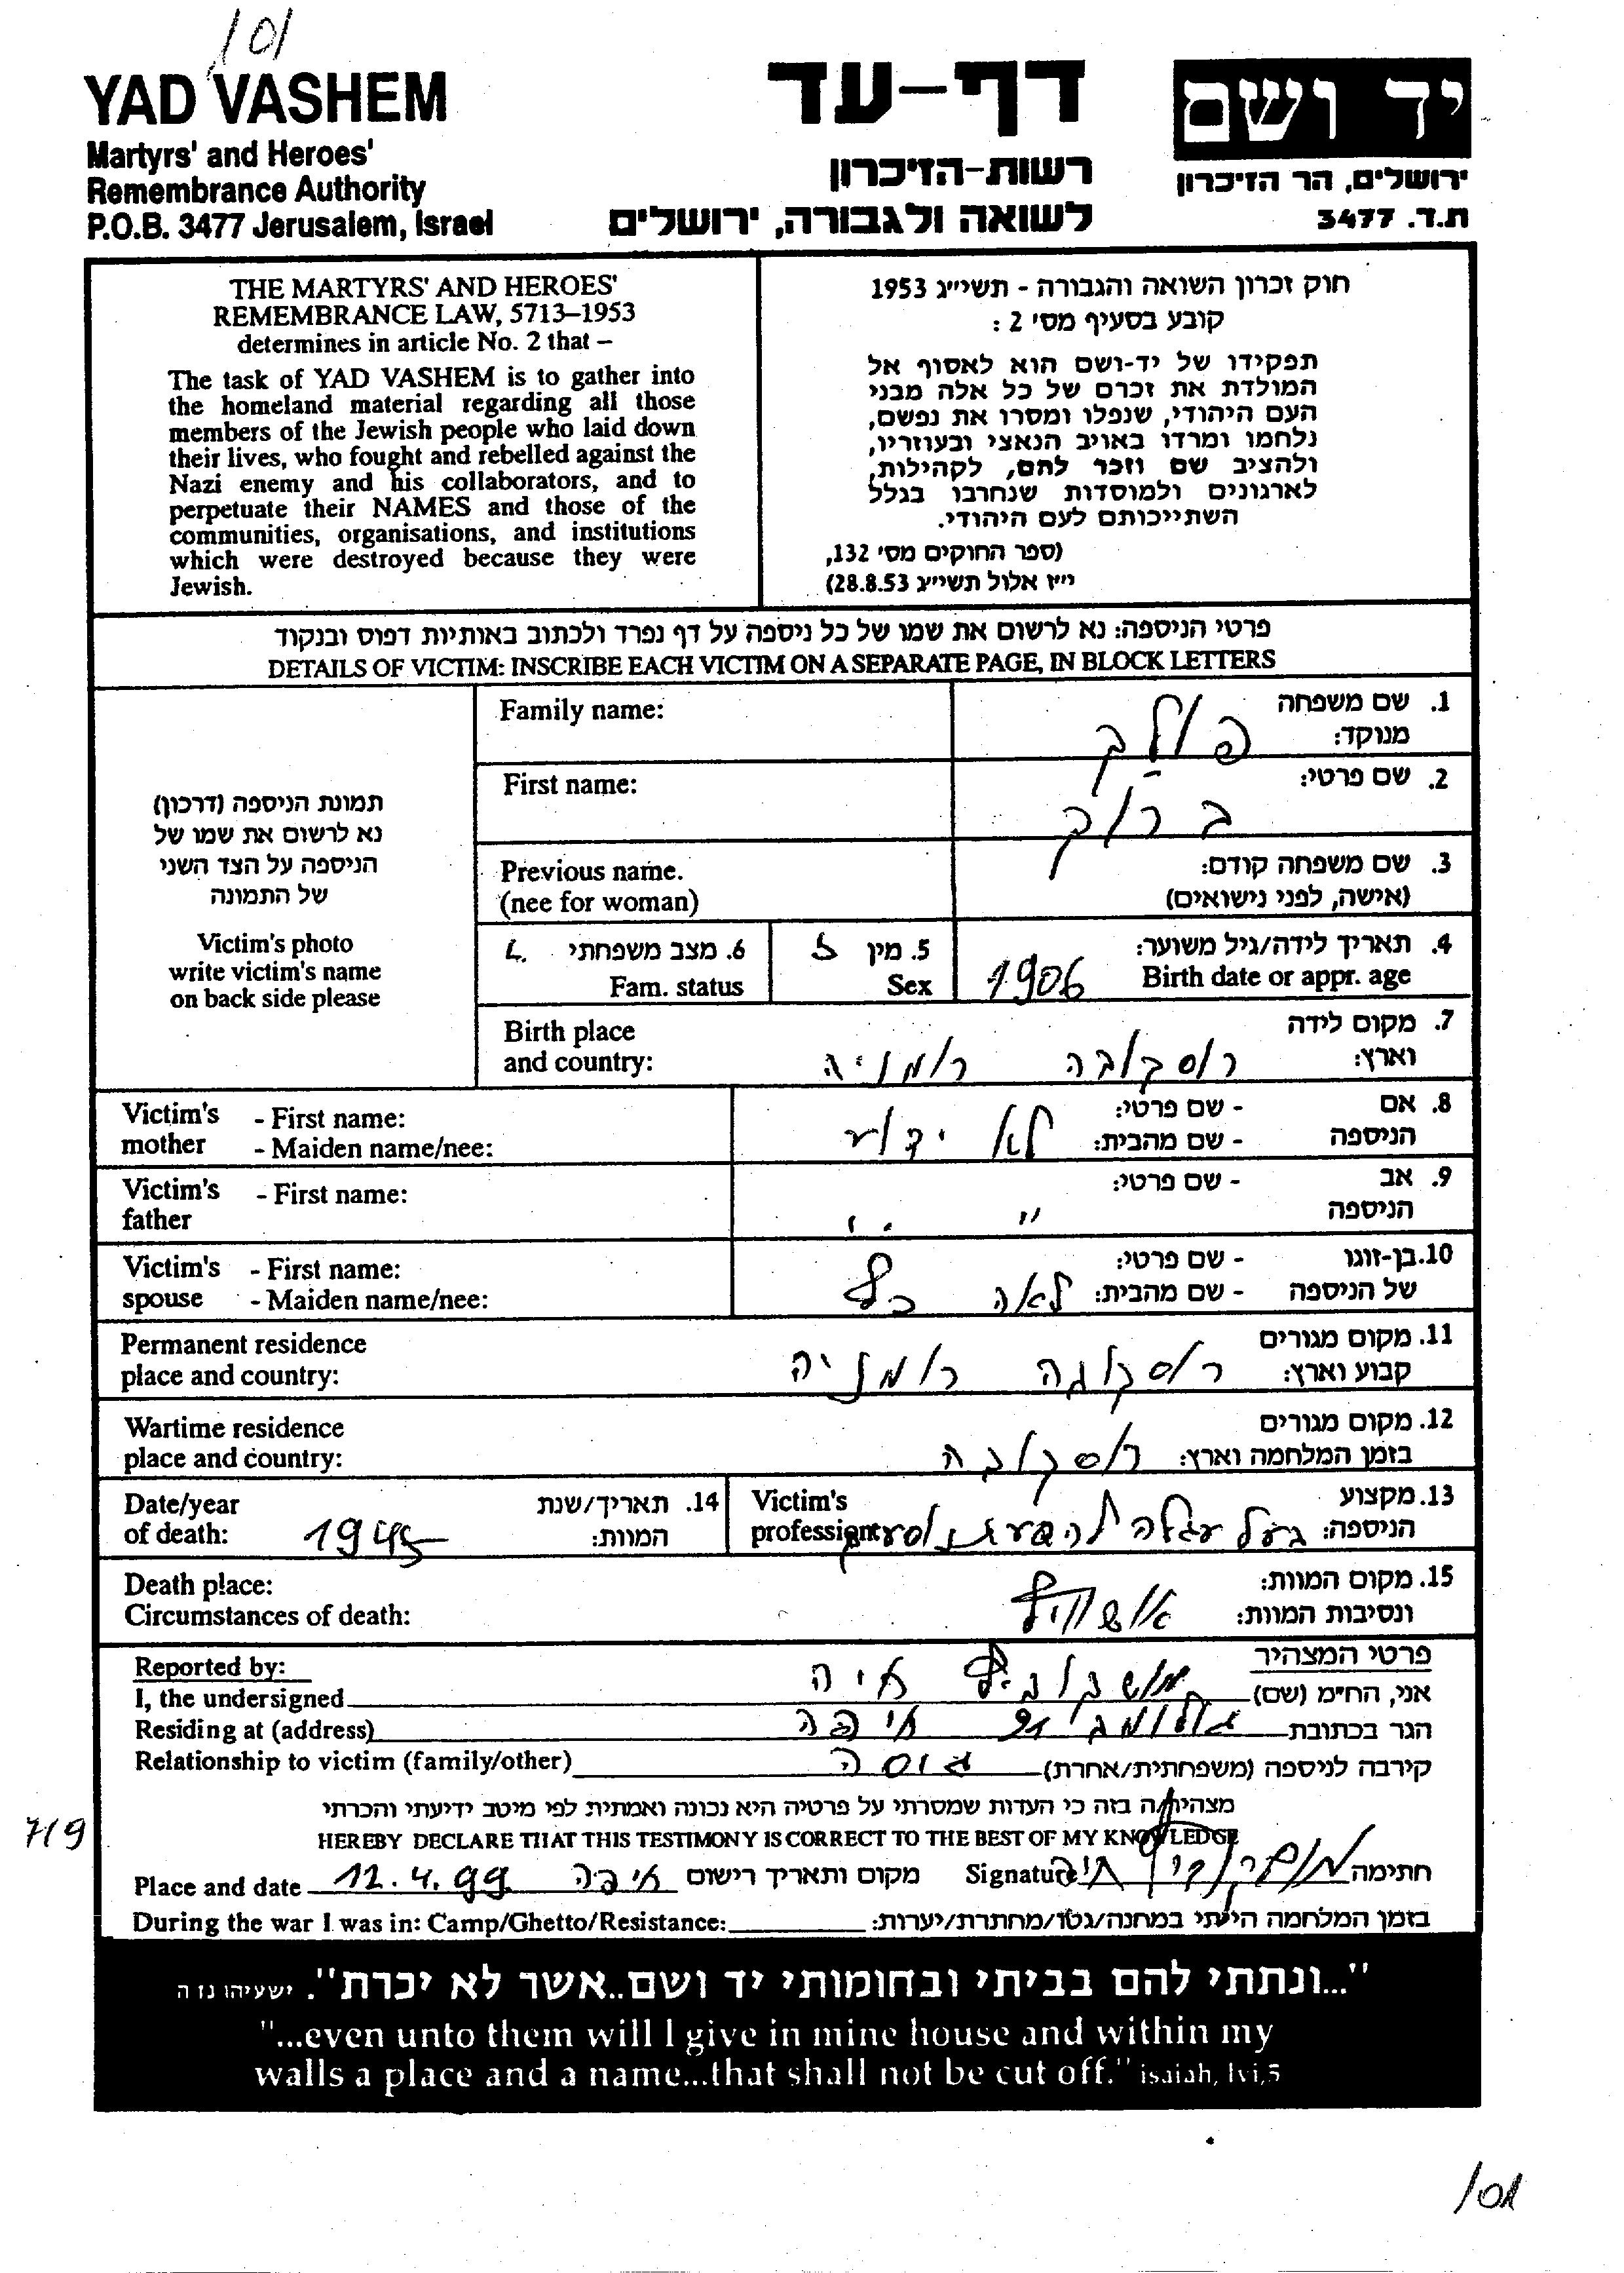 101
YAD VASHEM
Martyrs' and Heroes'
Remembrance Authority
P.O.B. 3477 Jerusalem, Israel
דף-עד
רשות-הזיכרון
לשואה ולגבורה, ירושלים
יד ושם
ירושלים, הר הזיכרון
ת.ד. 3477
THE MARTYRS' AND HEROES'
REMEMBRANCE LAW, 5713–1953
determines in article No. 2 that –
The task of YAD VASHEM is to gather into
the homeland material regarding all those
members of the Jewish people who laid down
their lives, who fought and rebelled against the
Nazi enemy and his collaborators, and to
perpetuate their NAMES and those of the
communities, organisations, and institutions
which were destroyed because they were
Jewish.
חוק זכרון השואה והגבורה - תשי"ג 1953
קובע בסעיף מס' 2 :
תפקידו של יד-ושם הוא לאסוף אל
המולדת את זכרם של כל אלה מבני
העם היהודי, שנפלו ומסרו את נפשם,
נלחמו ומרדו באויב הנאצי ובעוזריו,
ולהציב שם וזכר להם, לקהילות,
לארגונים ולמוסדות שנחרבו בגלל
השתייכותם לעם היהודי.
(ספר החוקים מס' 132,
י"ז אלול תשי"ג 28.8.53)
פרטי הניספה: נא לרשום את שמו של כל ניספה על דף נפרד ולכתוב באותיות דפוס ובנקוד
DETAILS OF VICTIM: INSCRIBE EACH VICTIM ON A SEPARATE PAGE, IN BLOCK LETTERS
תמונת הניספה (דרכון)
נא לרשום את שמו של
הניספה על הצד השני
של התמונה
Victim's photo
write victim's name
on back side please
1. שם משפחה פולק Family name:
מנוקד:
2. שם פרטי: ברוך First name:
3. שם משפחה קודם: Previous name.
(אישה, לפני נישואים) (nee for woman)
4. תאריך לידה/גיל משוער: 5. מין 6. מצב משפחתי
Birth date or appr. age 1906 Sex Fam. status
7. מקום לידה Birth place
וארץ: רוסקובה רומניה and country:
8. אם - שם פרטי: לא ידוע Victim's - First name:
הניספה - שם מהבית: mother - Maiden name/nee:
9. אב - שם פרטי: " Victim's - First name:
הניספה father
10. בן-זוגו - שם פרטי: לאה Victim's - First name:
של הניספה - שם מהבית: spouse - Maiden name/nee:
11. מקום מגורים Permanent residence
קבוע וארץ: רוסקובה רומניה place and country:
12. מקום מגורים Wartime residence
בזמן המלחמה וארץ: רוסקובה place and country:
13. מקצוע Victim's
הניספה: בעל עגלה profession:
14. תאריך/שנת Date/year
המוות: 1945 of death:
15. מקום המוות: Death place:
ונסיבות המוות: אושוויץ Circumstances of death:
פרטי המצהיר Reported by:
אני, הח"מ (שם) מושקוביץ חיה I, the undersigned
הגר בכתובת חיפה Residing at (address)
קירבה לניספה (משפחתית/אחרת) גיסה Relationship to victim (family/other)
מצהיר/ה בזה כי העדות שמסרתי על פרטיה היא נכונה ואמתית לפי מיטב ידיעתי והכרתי
HEREBY DECLARE THAT THIS TESTIMONY IS CORRECT TO THE BEST OF MY KNOWLEDGE
719
חתימה מושקוביץ חיה Signature מקום ותאריך רישום חיפה 12.4.99 Place and date
בזמן המלחמה הייתי במחנה/גטו/מחתרת/יערות: During the war I was in: Camp/Ghetto/Resistance:
"...ונתתי להם בביתי ובחומותי יד ושם..אשר לא יכרת". ישעיהו נו ה
"...even unto them will I give in mine house and within my
walls a place and a name...that shall not be cut off." isaiah, lvi,5
101